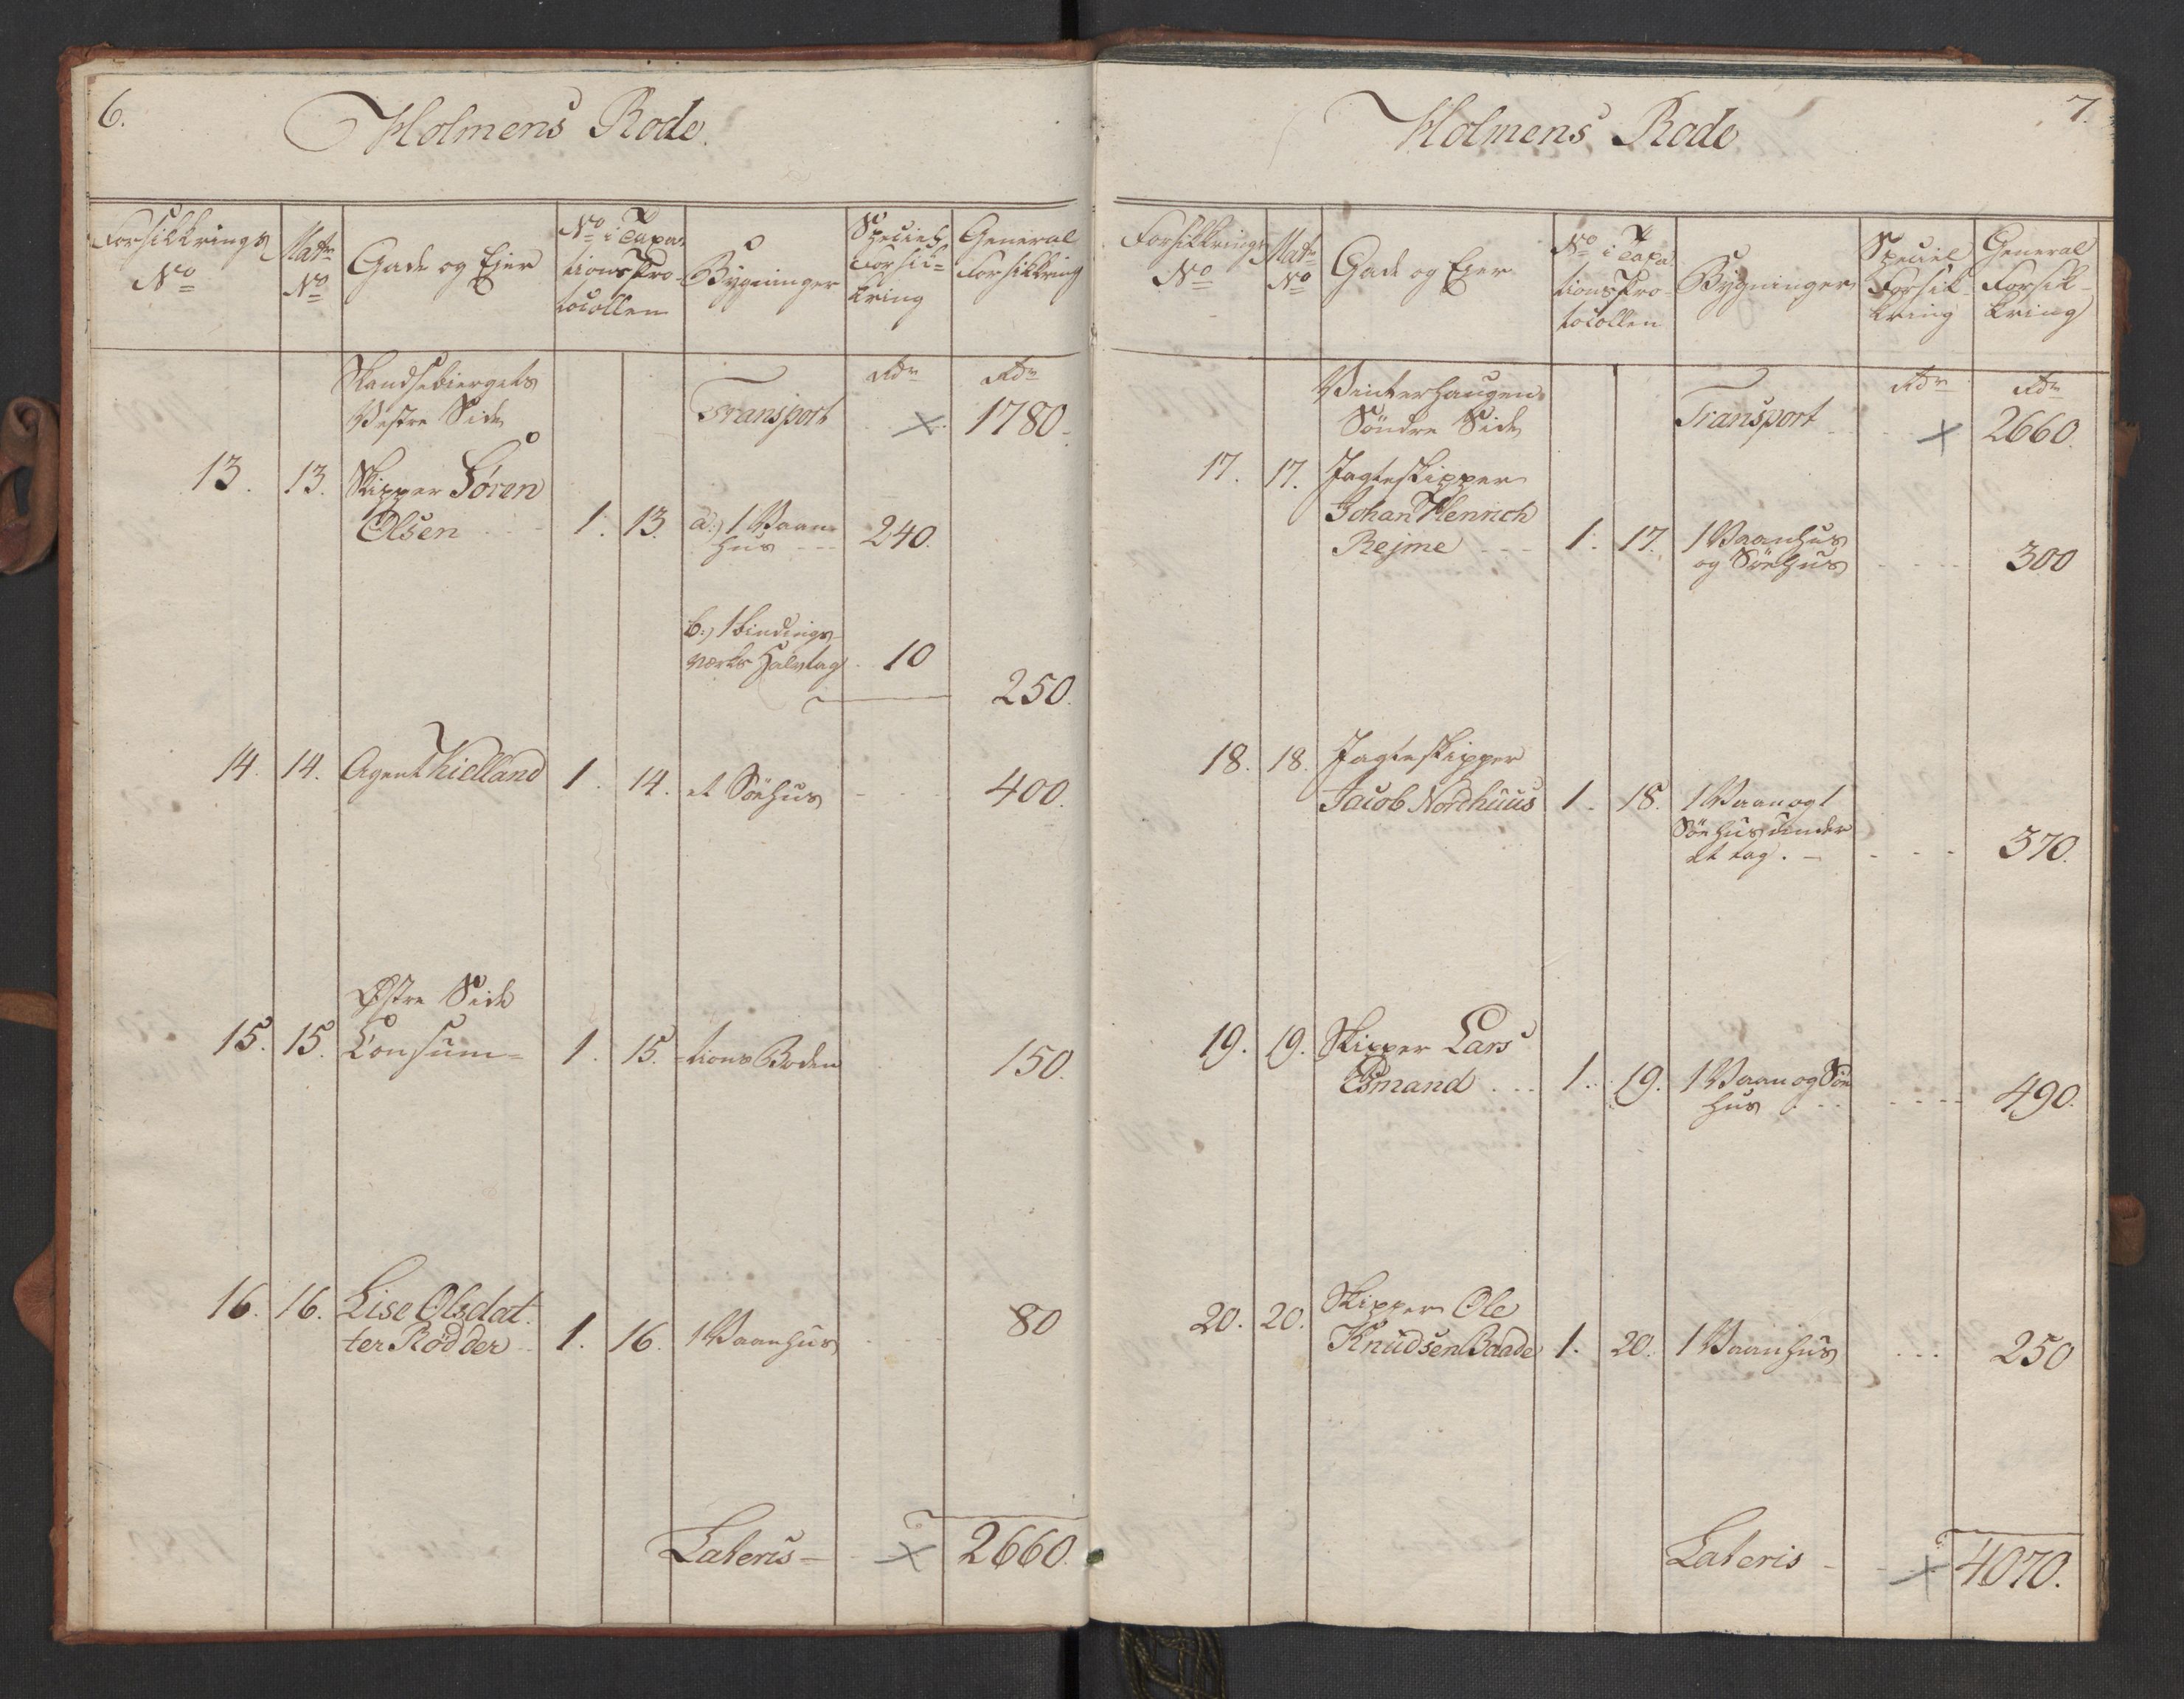 6.
Holmens Rode.
Forsikkrings No
Matr No
Gade og Ejer
No i Taxa-
tions Pro-
tocollen
Bygninger
Speciel
Forsik-
kring
General
Forsikkring
Skandsebiergets
Vestre Side
Transport
Rdr
Rdr
1780.
13. 13. Skipper Søren
Olsen 1. 13. a.) 1 Vaan-
hus 240.
b.) 1 bindings-
værks Halvtag 10
250.
14. 14. Agent Kielland 1. 14. et Söehus 400.
Østre Side
15. 15. Consum= 1. 15. =tions Boden 150.
16. 16. Lise Olsdat-
ter Rødder 1. 16. 1 Vaanhus 80
Lateris 2660.
7.
Holmens Rode
Forsikkrings No
Matr No
Gade og Ejer
No i Taxa-
tions Pro-
tocollen
Bygninger
Speciel
Forsik-
kring
General
Forsik-
kring
Vinterhaugens
Söndre Side
Transport
Rdr
Rdr
2660.
17. 17. Jagteskipper
Johan Henrich
Rejme 1. 17. 1 Vaanhus
og Söehus 300
18. 18. Jagteskipper
Jacob Nordhuus 1. 18. 1 Vaan og 1
Söehus under
et tag. 370.
19. 19. Skipper Lars
Esmand 1. 19. 1 Vaan og Söe
hus 490.
20. 20. Skipper Ole
Knudsen Baade 1. 20. 1 Vaanhus 250
Lateris 4070.